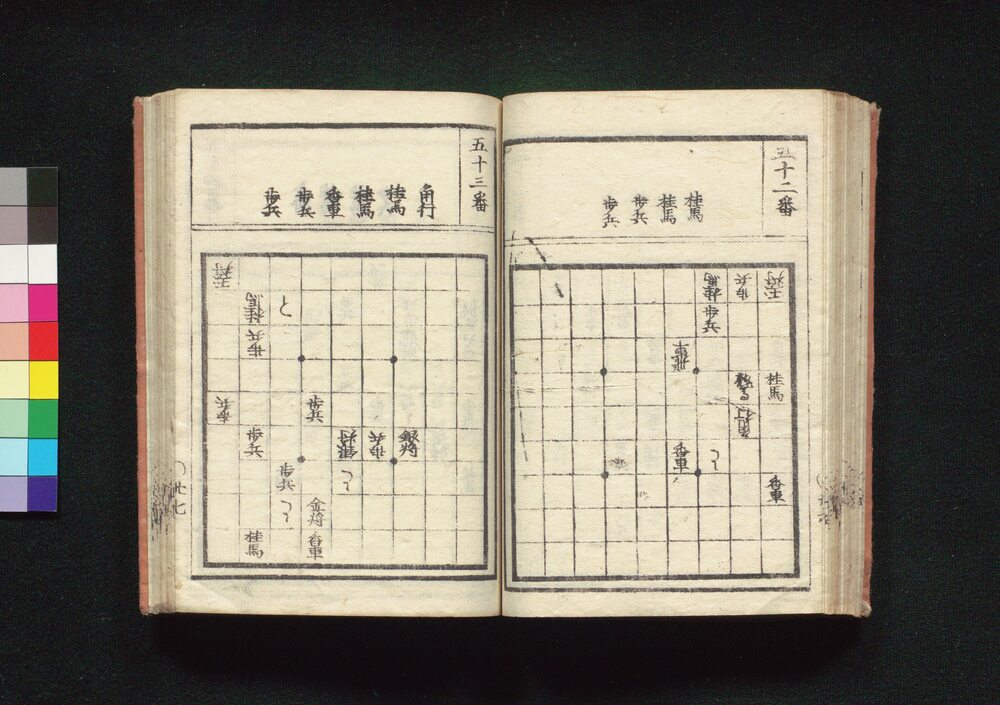 五十二番
桂馬
桂馬
歩兵
歩兵
玉将
歩兵
桂馬
歩兵
飛車
桂馬
角行
香車
香車
五十三番
角行
桂馬
桂馬
香車
歩兵
歩兵
玉将
と
桂馬
歩兵
歩兵
歩兵
銀将
歩兵
銀将
歩兵
歩兵
金将
香車
桂馬
卅七